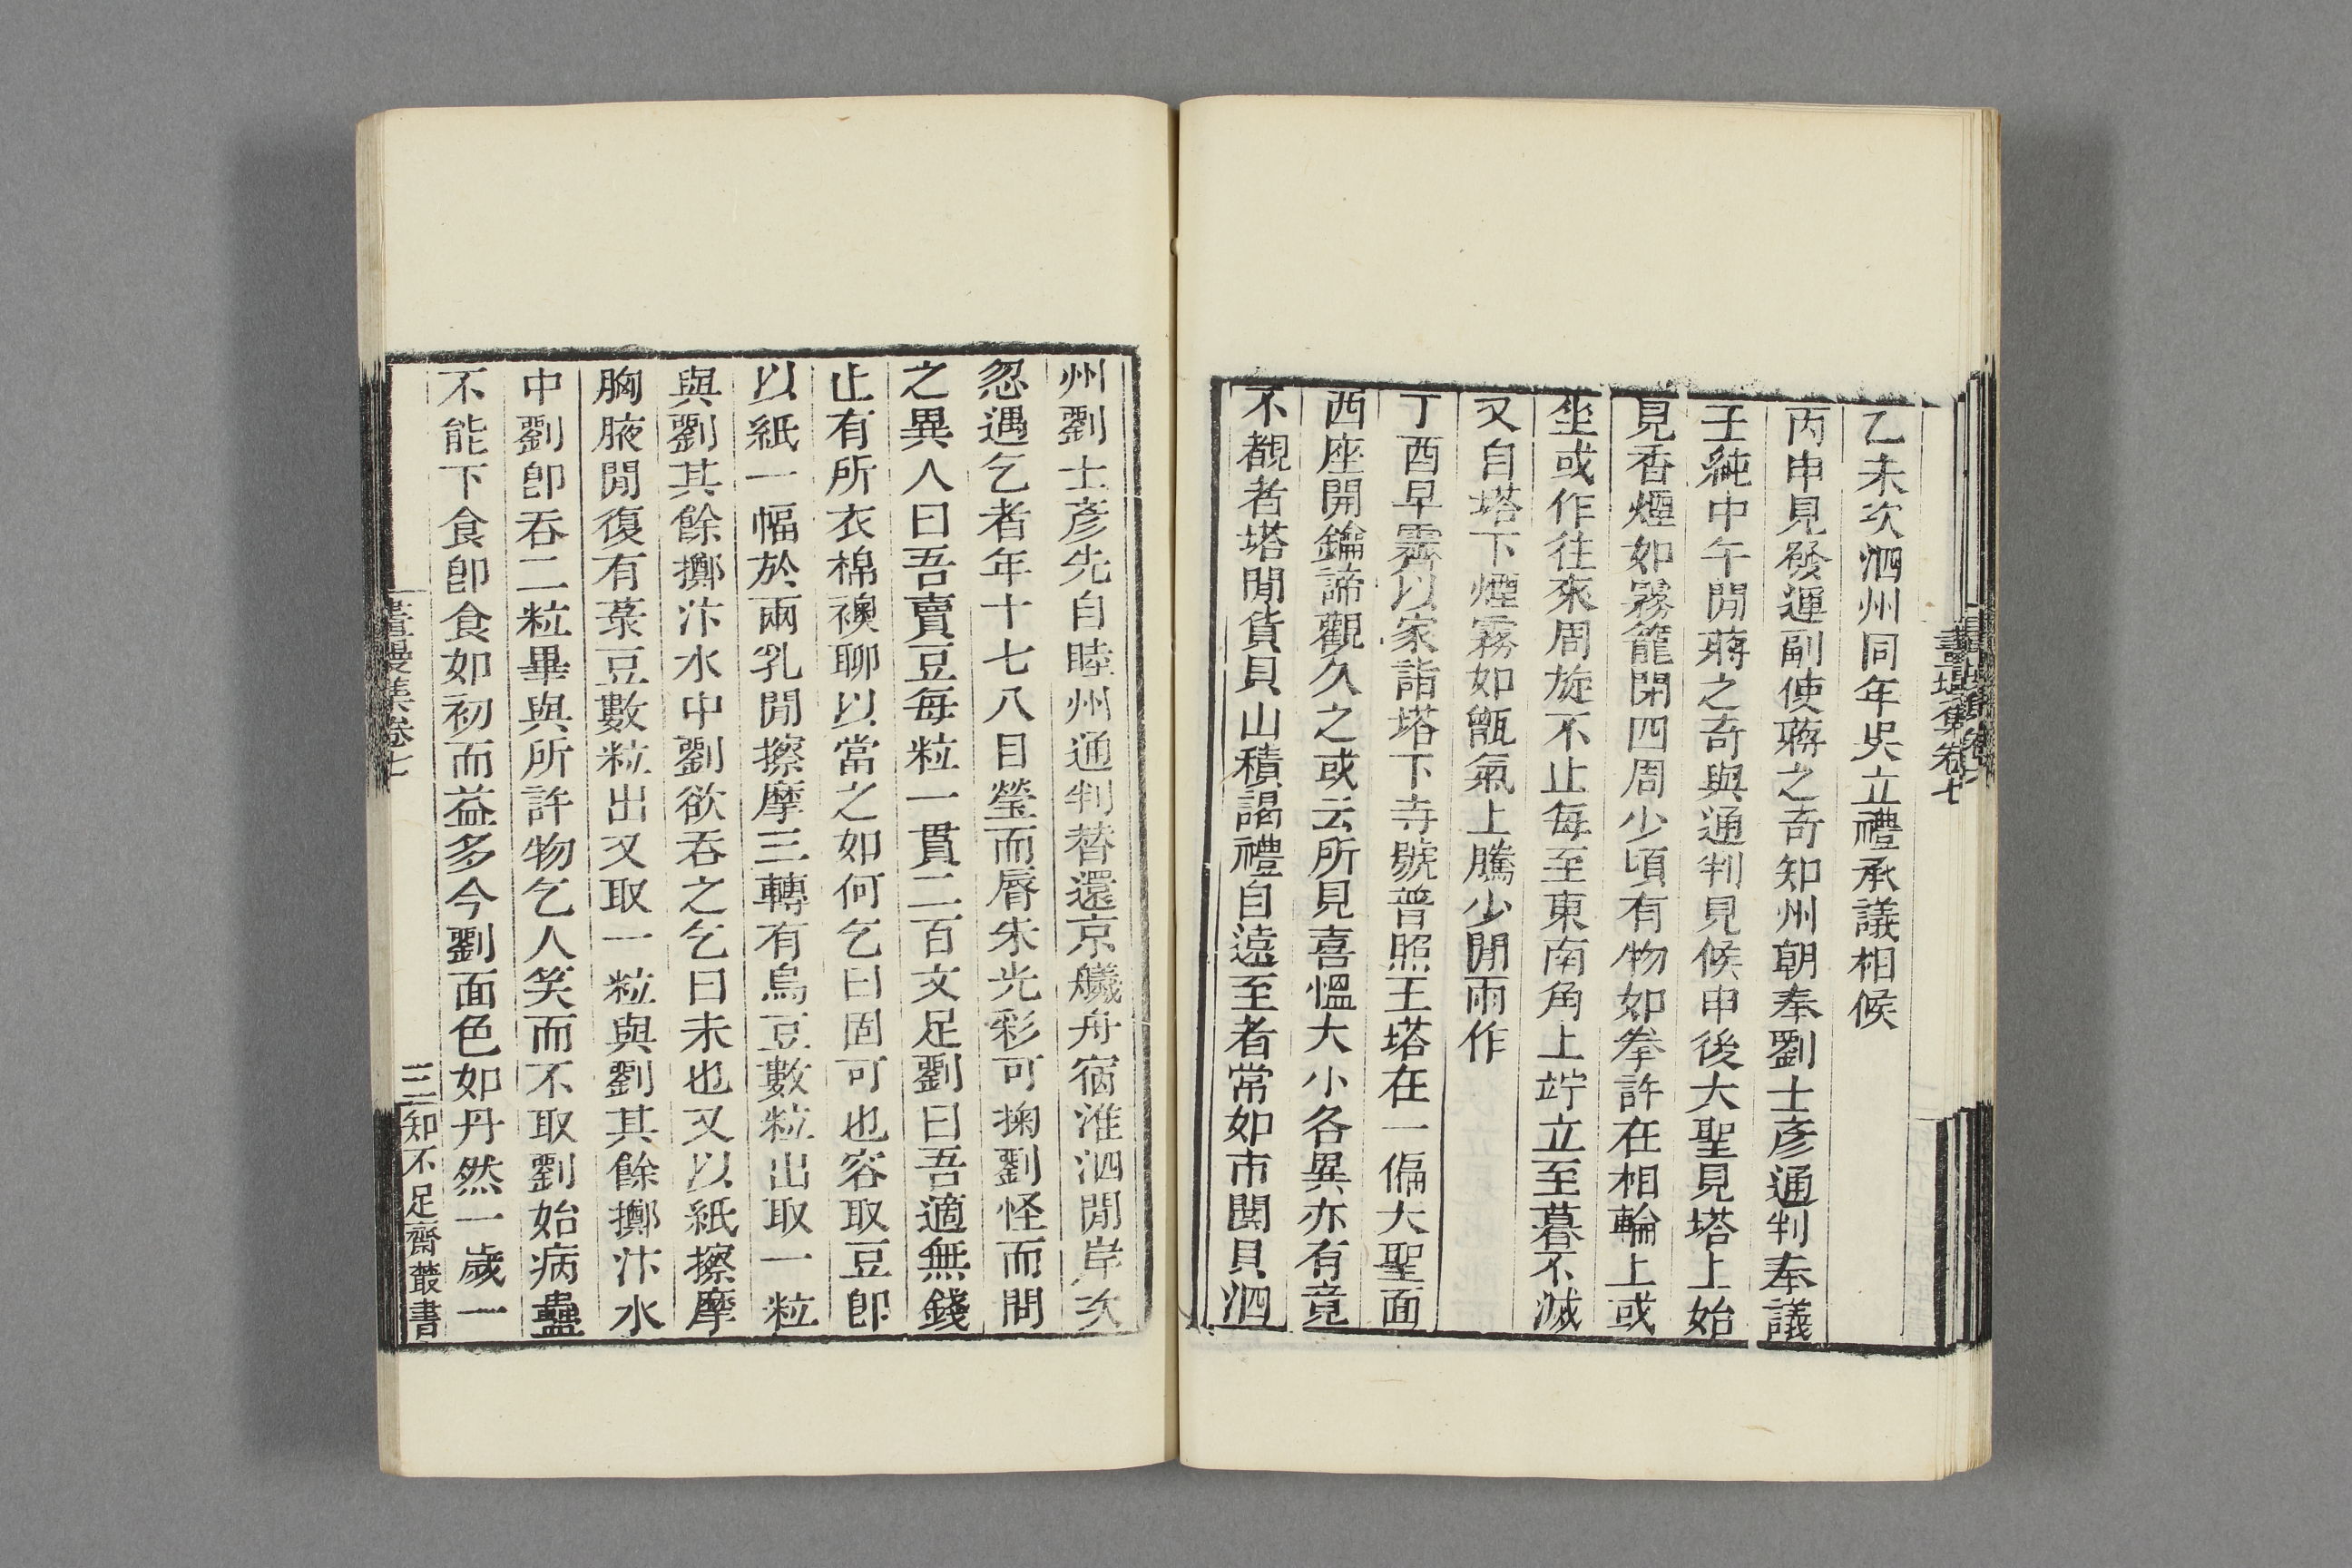 畫墁集卷七
乙未次泗州同年吳立禮承議相候
丙申見發運副使蔣之奇知州朝奉劉士彥通判奉議
王純中午閒蔣之奇與通判見候申後大聖見塔上始
見香煙如霧籠閉四周少頃有物如拳許在相輪上或
坐或作往來周旋不止每至東南角上竚立至暮不滅
又自塔下煙霧如甑氣上騰少閒雨作
丁酉早霽以家詣塔下寺號普照王塔在一偏大聖面
西座開鑰諦觀久之或云所見喜慍大小各異亦有竟
不覩者塔閒貨貝山積謁禮自遠至者常如市閧貝泗
州劉士彥先自睦州通判替還京艤舟宿淮泗閒岸次
忽遇乞者年十七八目瑩而脣朱光彩可掬劉怪而問
之異人曰吾賣豆每粒一貫二百文足劉曰吾適無錢
止有所衣棉襖聊以當之如何乞曰固可也容取豆卽
以紙一幅於兩乳閒擦摩三轉有烏豆數粒出取一粒
與劉其餘擲汴水中劉欲吞之乞曰未也又以紙擦摩
胸腋閒復有菉豆數粒出又取一粒與劉其餘擲汴水
中劉卽吞二粒畢與所許物乞人笑而不取劉始病蠱
不能下食卽食如初而益多今劉面色如丹然一歲一
畫墁集卷七
三
知不足齋叢書